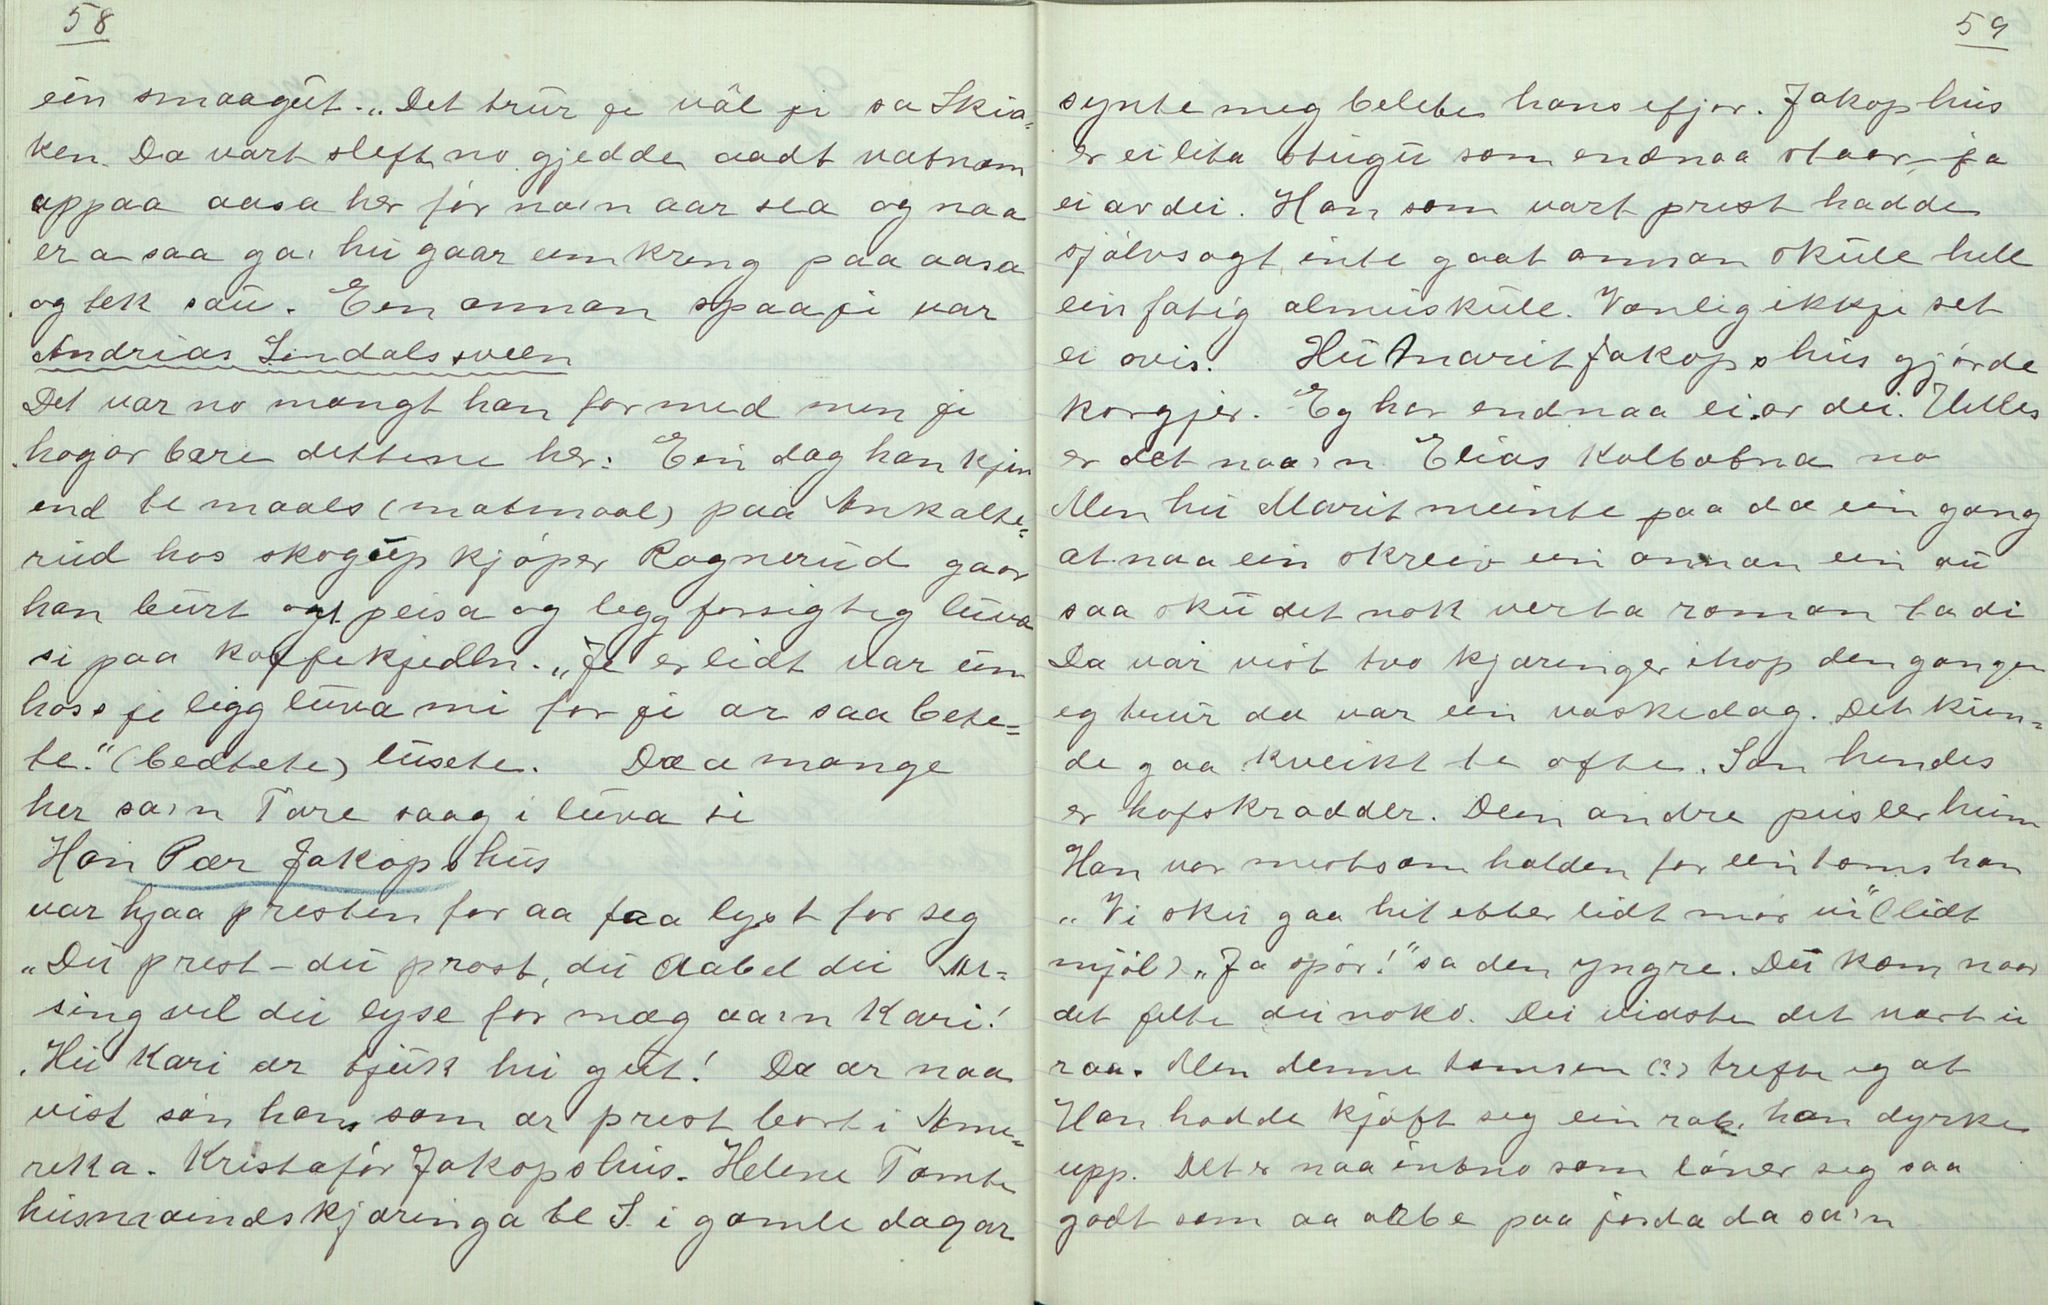 58
ein smaagut. „Det trur je väl ji sa Skia-
ken. Da vart sleft no gjedde aadt vatnom
uppaa aasa her før na'n aar sea og naa
er a saa ga, hu gaar umkring paa aasa
og tek sau. Ein annan spaaji var
Andrias Lindalssveen
Det var no mangt han for med men ji
hogar bære dettene her: Ein dag han kjem
end te maals (matmaal) paa Ankalte-
rud hos skogupkjøper Ragnerud gaar
han burt ogt peisa og legg forsigtig luva
si paa kaffekjedln. „Je er lidt var um
hoss je ligg luva mi for ji ar saa bete-
te." (bedtete) lusete. Da a mange
her sa'n Tore saag i luva si
Han Pær Jakopshus
var hjaa presten for aa faa lyst for seg
„Du prest – du prost, du Aabel du Mu-
sing vil du lyse for mæg aa'n Kari!
Hu Kari ar tjukk hu gut! Da ar naa
vist søn hans som ar prest bort i Ame-
rika. Kristafør Jakopshus. Helene Tomte
husmaindskjæringa te S. i gamle dagar
59
synte meg belete hans ifjor. Jakopshus
er ei lita stugu som endnaa staar, ja
ei av dei. Han som vart prest hadde
sjølvsagt inte gaat annan skule hell
ein fatig almuskule. Vanlig ikkje set
ei avis. Hu Marit Jakopshus gjørde
korgjer. Eg har endnaa ei av dei. Utles
er det naa'n Elias Kalbotna no
Men hu Marit meinte paa da ein gang
at naa ein skreiv ein annan ein au
saa sku det nok verta roman ta di
Da var vist tvo kjæringer ihop den gangen
eg trur da var ein vaskedag. Det kun-
de gaa kveikt te ofte. Son hendes
er hofskradder. Den andre pusler heim
Han var mest som halden for ein toms han
„Vi sku gaa hit etter lidt mør ui" (lidt
mjøl) „Ja spør!" sa den yngre. Du kom naar
det felte dei noko. Dei vidste det vart u
raa. Men denne tomsen (?) trefte eg at
Han hadde kjøft seg ein rab, han dyrke
upp. Det er naa intno som løner seg saa
godt som aa arbe paa jorda da sa'n